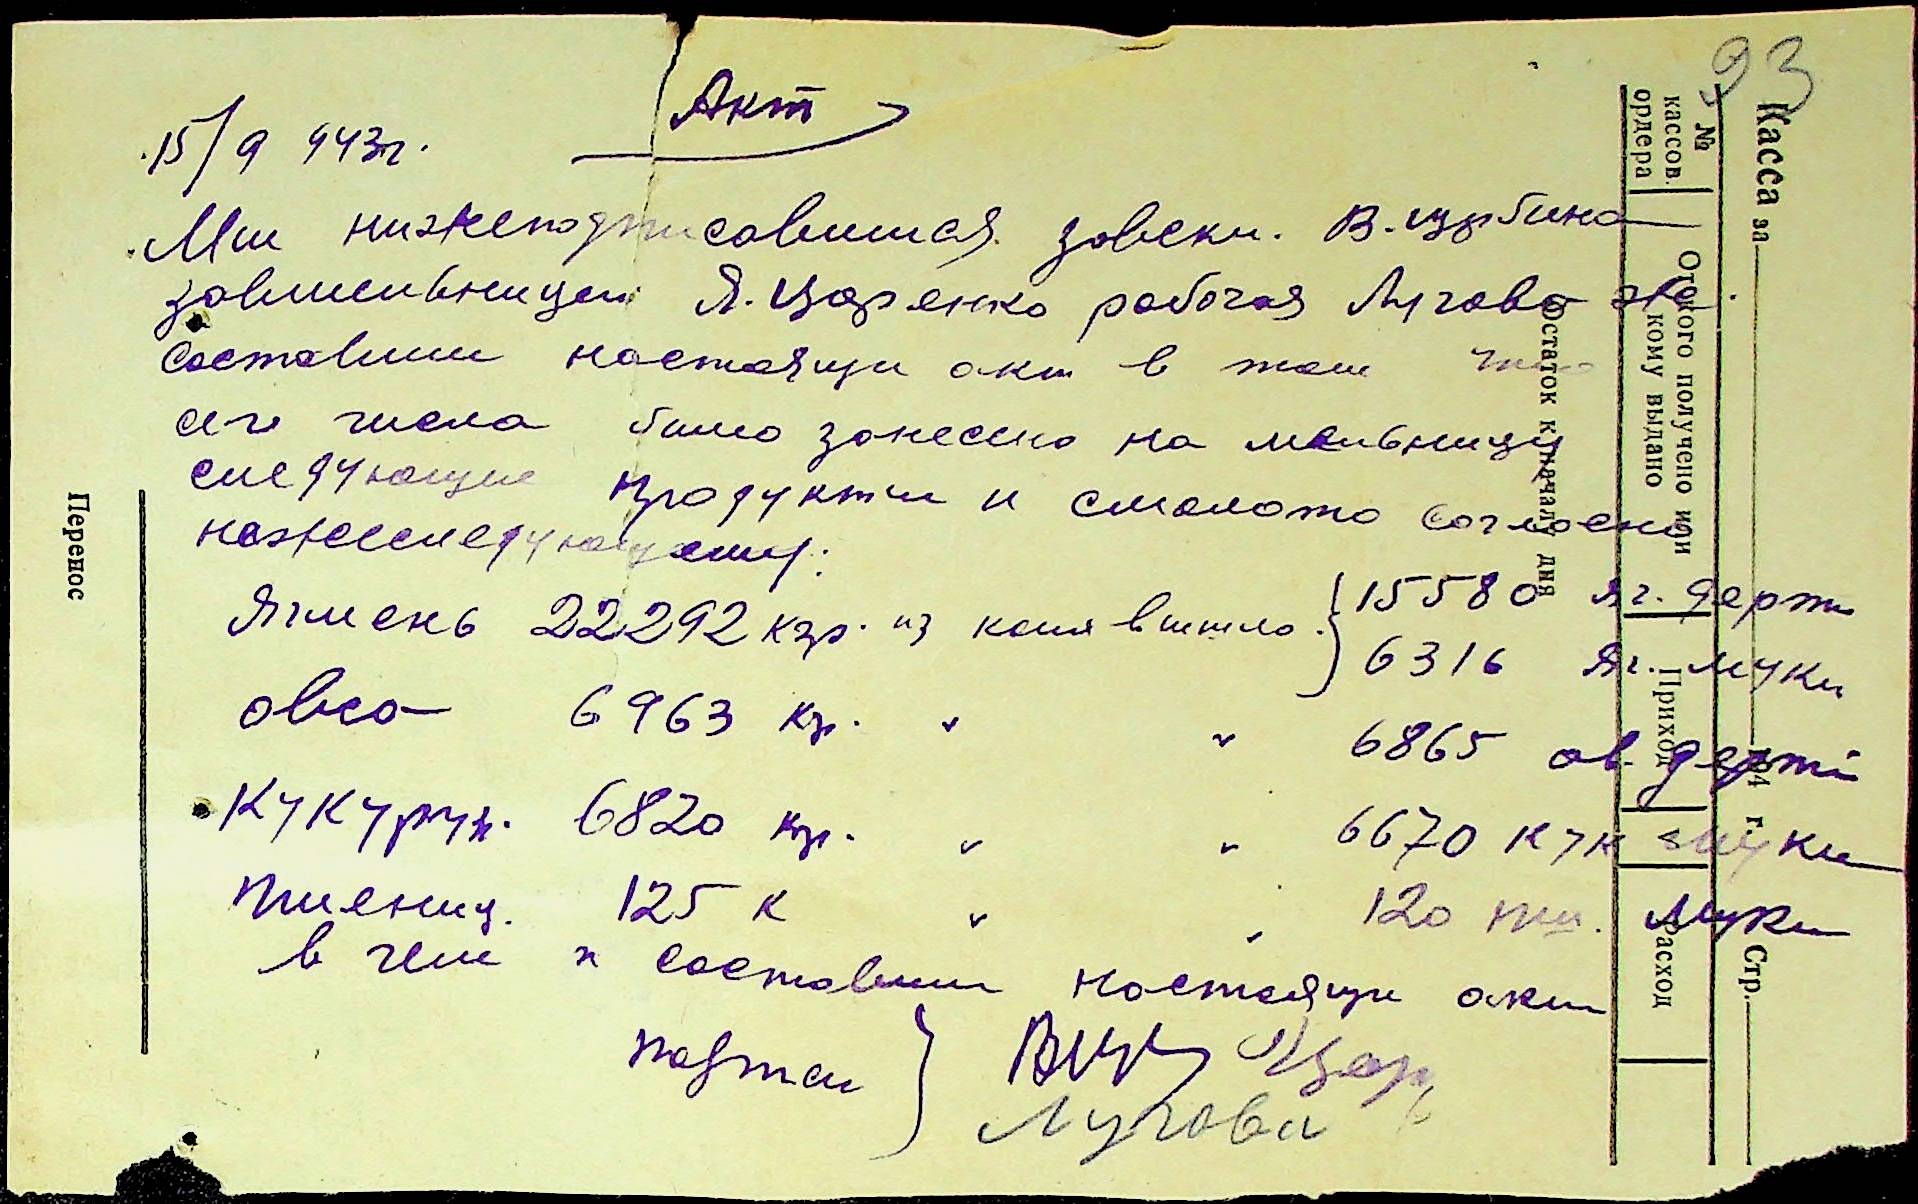 93
Акт
15/9 943г.
Ми нижеподписавшися завскл. В. Щурбина
завмельницей Я. Царенко рабочая Лугова
составили настоящи акт в том что
сего числа било занесено на мельницу
следующие продукти и смолото согласно
нежеследующему:
Ячмень 22292 кгр. из коня вишло. 15580 яч. дерти
6316 яч. муки
овса 6963 кгр. " " 6865 ов. дерти
Кукуруз. 6820 кгр. " " 6670 кук муки
Пшениц. 125 к " " 120 пш. муки
в чем и составили настоящи акт
подпси
Лугова
Касса за 194 г. Стр.
№ кассов. ордера
От кого получено или кому выдано
Остаток к началу дня
Приход
Расход
Перенос